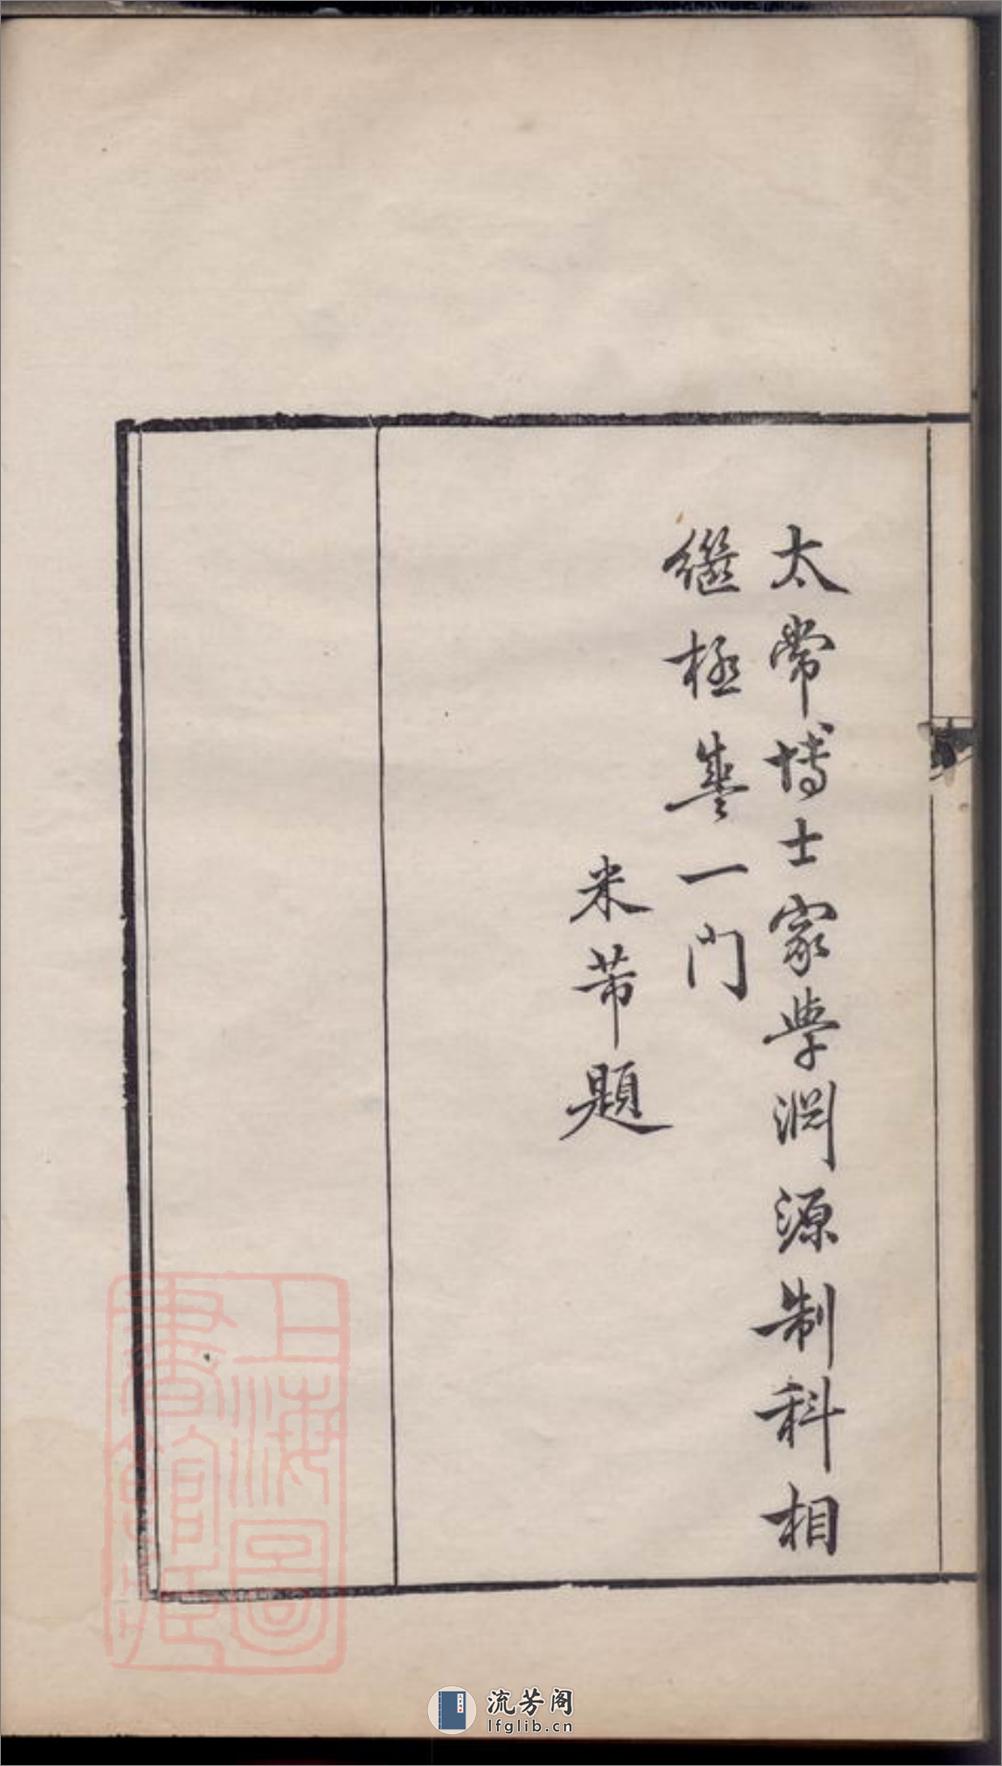 太常博士家學淵源制科相
繼極盛一門
米芾題
上海圖
書館藏
流芳阁
lfglib.cn